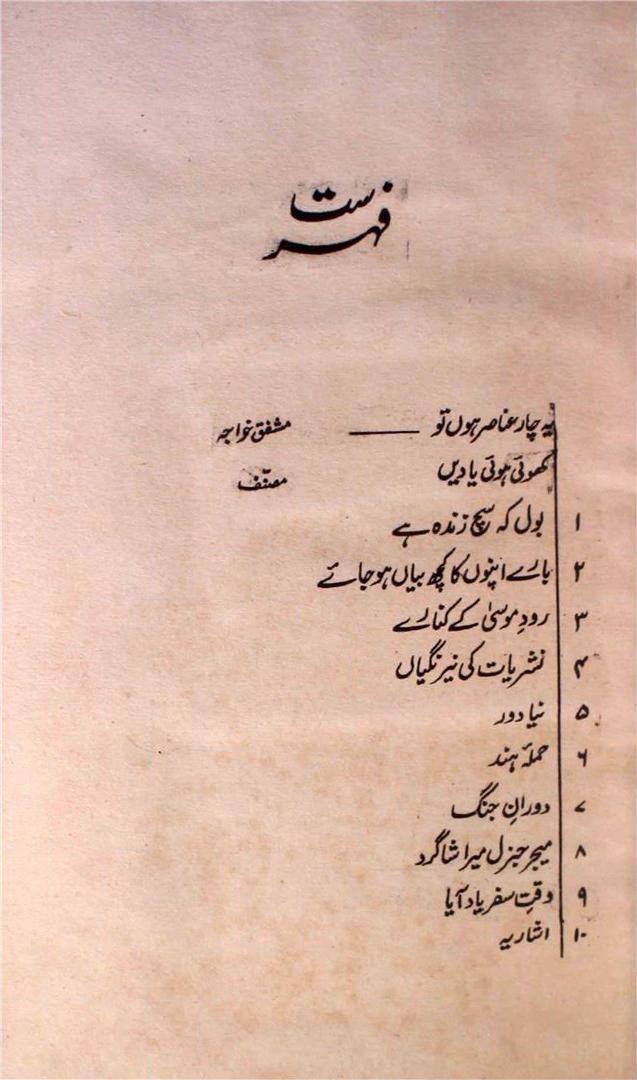 فہرست
یہ چار عناصر ہوں تو ــــــــ مشفق خواجہ
کھوئی ہوئی یادیں مصنّف
۱ بول کہ سچ زندہ ہے
۲ بارے اپنوں کا کچھ بیاں ہو جائے
۳ رودِ موسیٰ کے کنارے
۴ نشریات کی نیرنگیاں
۵ نیا دور
۶ حملۂ ہند
۷ دورانِ جنگ
۸ میجر جنرل میرا شاگرد
۹ وقتِ سفر یاد آیا
۱۰ اشاریہ